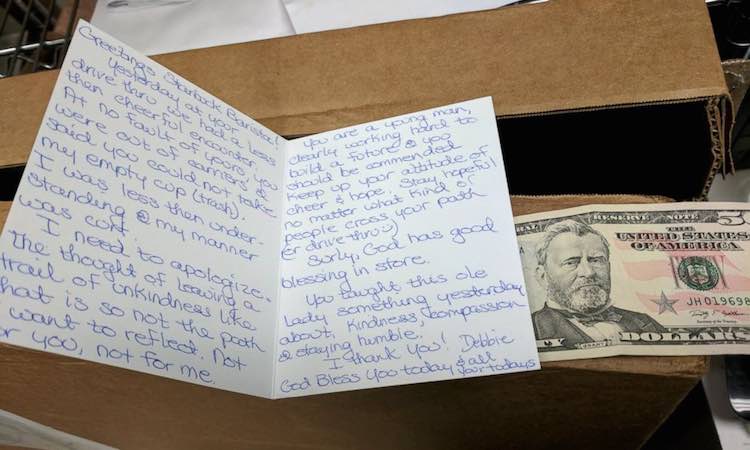 Greetings Starbuck Barista!
Yesterday at your
drive thru we had a less
then cheerful encounter.
At no fault of yours, you
were out of carriers &
said you could not take
my empty cup (trash).
I was less then under-
standing & my manner
was curt.
I need to apologize.
The thought of leaving a
trail of unkindness like
that is so not the path
I want to reflect. Not
or you, not for me.
You are a young man,
clearly working hard to
build a future & you
should be commended
keep up your attitude of
cheer & hope. Stay hopeful
no matter what kind of
people cross your path
(or drive thru :)
Surly, God has good
blessing in store.
You taught this ole
lady something yesterday
about, kindness, compassion
& staying humble.
I thank you! Debbie
God Bless You today & all
your todays
RESERVE NOTE
THE
UNITED STATES
OF AMERICA
JH01969
DOLLARS